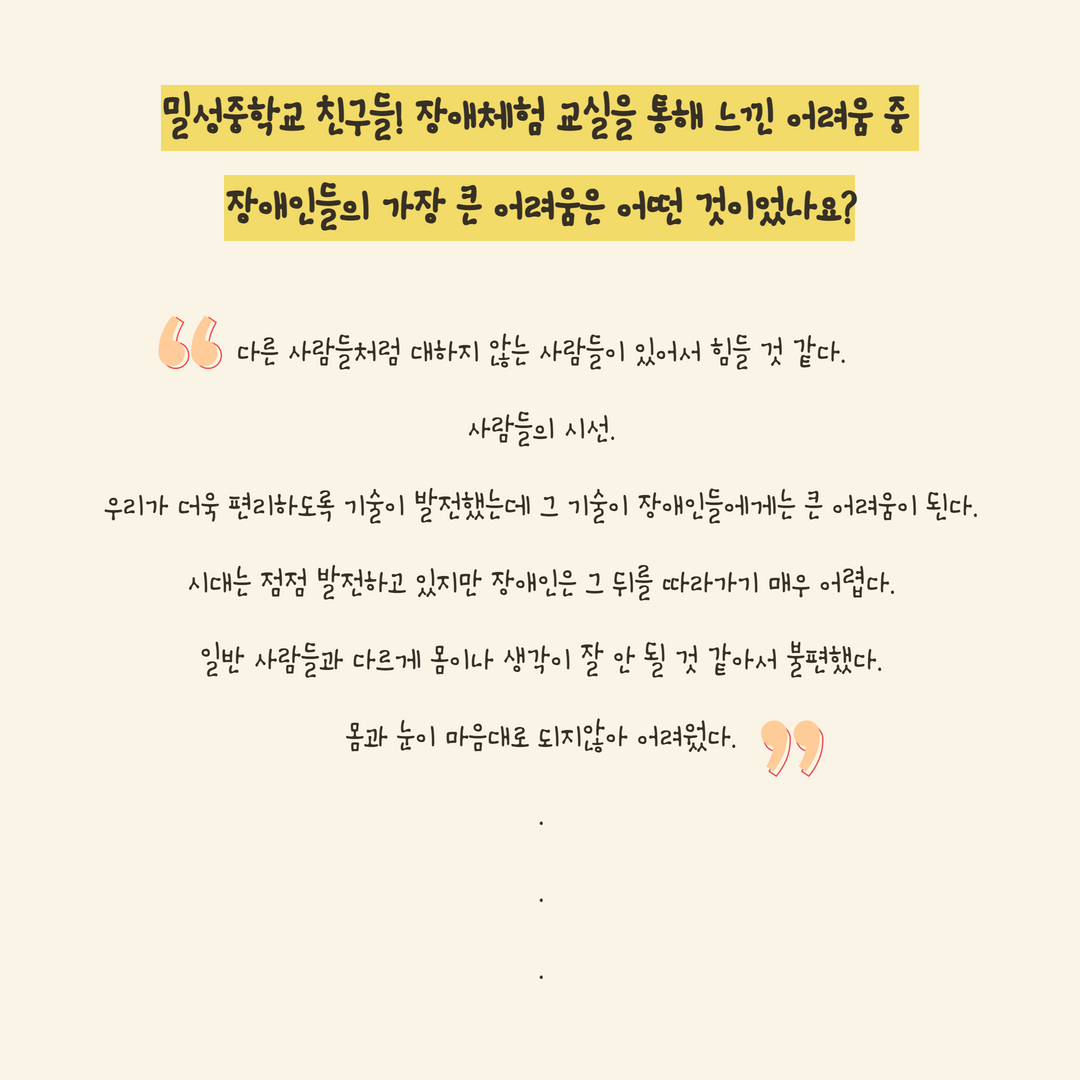 밀성중학교 친구들! 장애체험 교실을 통해 느낀 어려움 중
장애인들의 가장 큰 어려움은 어떤 것이었나요?
“ 다른 사람들처럼 대하지 않는 사람들이 있어서 힘들 것 같다.
사람들의 시선.
우리가 더욱 편리하도록 기술이 발전했는데 그 기술이 장애인들에게는 큰 어려움이 된다.
시대는 점점 발전하고 있지만 장애인은 그 뒤를 따라가기 매우 어렵다.
일반 사람들과 다르게 몸이나 생각이 잘 안 될 것 같아서 불편했다.
몸과 눈이 마음대로 되지않아 어려웠다. ”
.
.
.